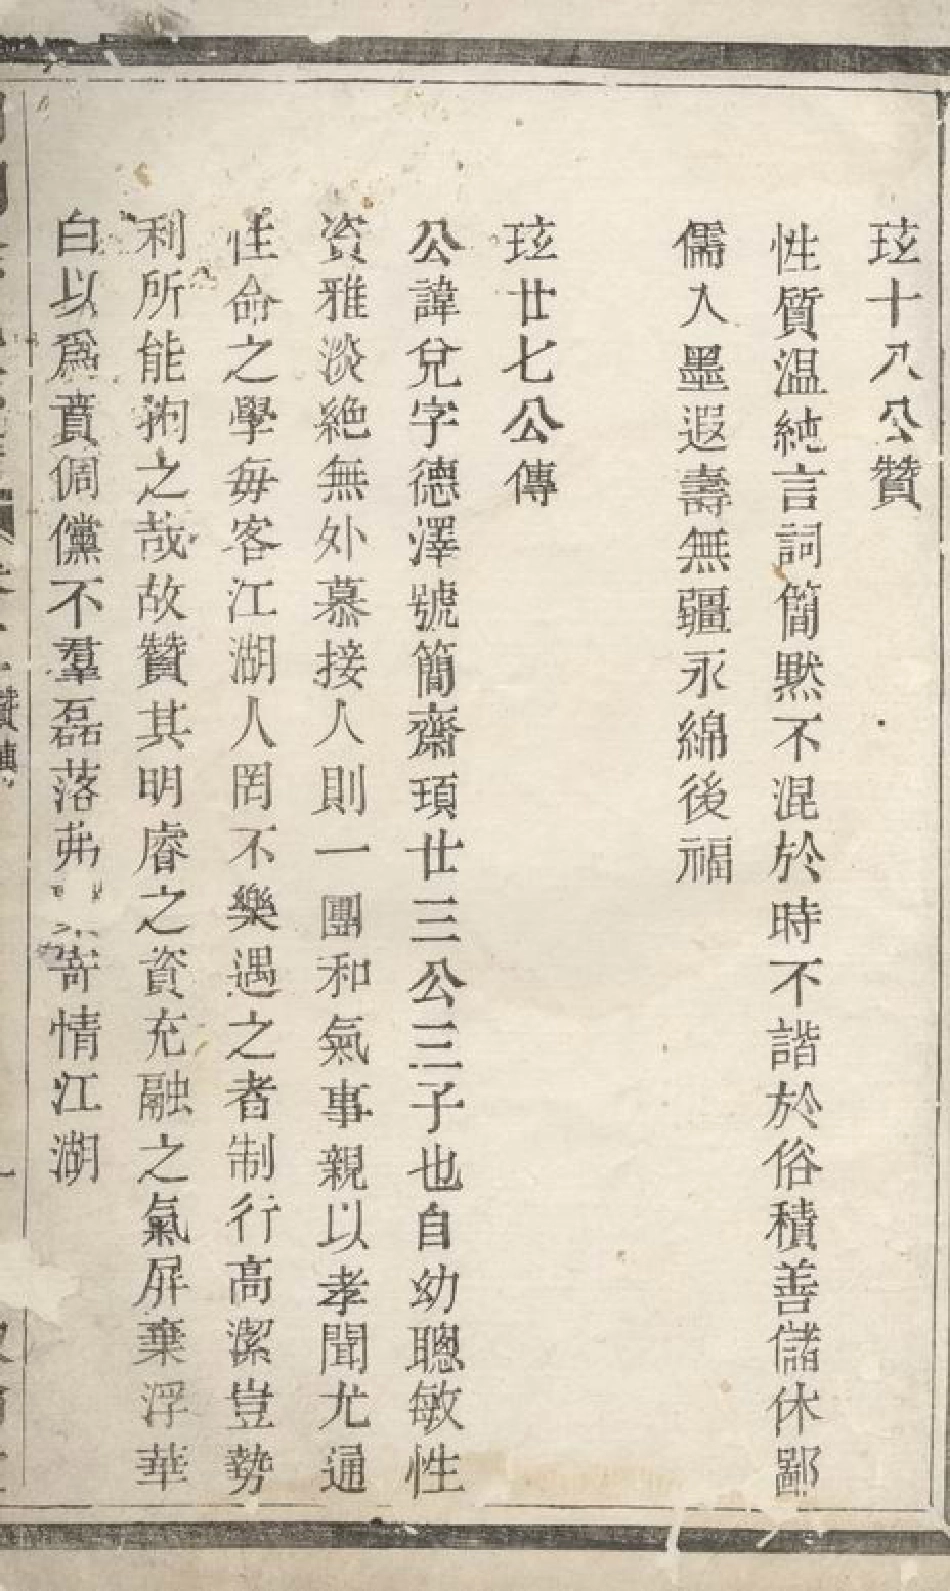 玹十八公贊
性質温純言詞簡默不混於時不諧於俗積善儲休鄙
儒入墨遐壽無疆永綿後福
玹廿七公傳
公諱兌字德澤號簡齋頊廿三公三子也自幼聰敏性
資雅淡絶無外慕接人則一團和氣事親以孝聞尤通
性命之學每客江湖人罔不樂遇之者制行高潔豈勢
利所能拘之哉故贊其明睿之資充融之氣屏棄浮華
白以爲賁倜儻不羣磊落寄情江湖